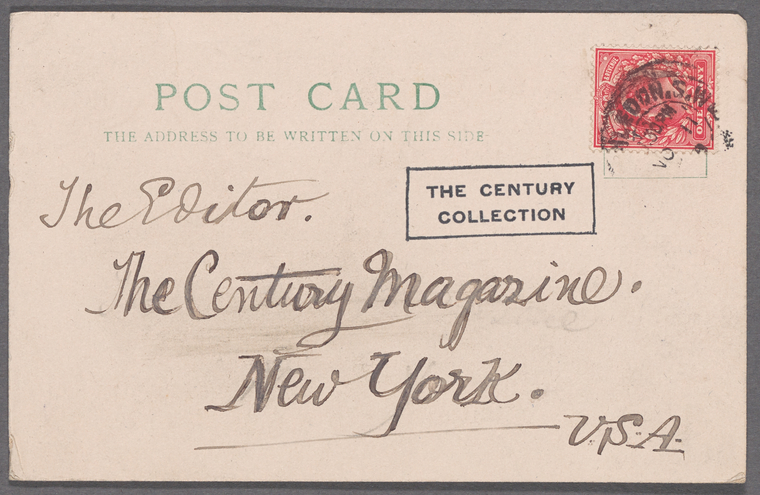 POST CARD
THE ADDRESS TO BE WRITTEN ON THIS SIDE
THE CENTURY
COLLECTION
The Editor.
The Century Magazine.
New York.
U.S.A.